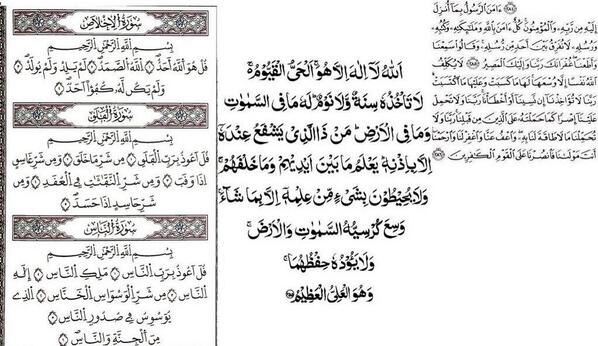 سُورَةُ الْإِخْلَاصِ
بِسْمِ اللَّهِ الرَّحْمَٰنِ الرَّحِيمِ
قُلْ هُوَ اللَّهُ أَحَدٌ ۝ اللَّهُ الصَّمَدُ ۝ لَمْ يَلِدْ وَلَمْ يُولَدْ ۝
وَلَمْ يَكُن لَّهُ كُفُوًا أَحَدٌ ۝
سُورَةُ الْفَلَقِ
بِسْمِ اللَّهِ الرَّحْمَٰنِ الرَّحِيمِ
قُلْ أَعُوذُ بِرَبِّ الْفَلَقِ ۝ مِن شَرِّ مَا خَلَقَ ۝ وَمِن شَرِّ غَاسِقٍ
إِذَا وَقَبَ ۝ وَمِن شَرِّ النَّفَّٰثَٰتِ فِي الْعُقَدِ ۝ وَمِن
شَرِّ حَاسِدٍ إِذَا حَسَدَ ۝
سُورَةُ النَّاسِ
بِسْمِ اللَّهِ الرَّحْمَٰنِ الرَّحِيمِ
قُلْ أَعُوذُ بِرَبِّ النَّاسِ ۝ مَلِكِ النَّاسِ ۝ إِلَٰهِ
النَّاسِ ۝ مِن شَرِّ الْوَسْوَاسِ الْخَنَّاسِ ۝ الَّذِي
يُوَسْوِسُ فِي صُدُورِ النَّاسِ ۝
مِنَ الْجِنَّةِ وَالنَّاسِ ۝
اَللّٰهُ لَاۤ اِلٰهَ اِلَّا هُوَ ۚ اَلْحَىُّ الْقَيُّوْمُ ۚ
لَا تَاْخُذُهٗ سِنَةٌ وَّلَا نَوْمٌ ؕ لَهٗ مَا فِى السَّمٰوٰتِ
وَمَا فِى الْاَرْضِ ؕ مَنْ ذَا الَّذِىْ يَشْفَعُ عِنْدَهٗۤ
اِلَّا بِاِذْنِهٖ ؕ يَعْلَمُ مَا بَيْنَ اَيْدِيْهِمْ وَمَا خَلْفَهُمْ ۚ
وَلَا يُحِيْطُوْنَ بِشَىْءٍ مِّنْ عِلْمِهٖۤ اِلَّا بِمَا شَآءَ ۚ
وَسِعَ كُرْسِيُّهُ السَّمٰوٰتِ وَالْاَرْضَ ۚ
وَلَا يَـُٔوْدُهٗ حِفْظُهُمَا ۚ
وَهُوَ الْعَلِىُّ الْعَظِيْمُ ۝
﴿٢٨٤﴾ ءَامَنَ الرَّسُولُ بِمَا أُنزِلَ
إِلَيْهِ مِن رَّبِّهِ وَالْمُؤْمِنُونَ كُلٌّ ءَامَنَ بِاللَّهِ وَمَلَٰئِكَتِهِ وَكُتُبِهِ
وَرُسُلِهِ لَا نُفَرِّقُ بَيْنَ أَحَدٍ مِّن رُّسُلِهِ وَقَالُوا سَمِعْنَا
وَأَطَعْنَا غُفْرَانَكَ رَبَّنَا وَإِلَيْكَ الْمَصِيرُ ﴿٢٨٥﴾ لَا يُكَلِّفُ
اللَّهُ نَفْسًا إِلَّا وُسْعَهَا لَهَا مَا كَسَبَتْ وَعَلَيْهَا مَا اكْتَسَبَتْ
رَبَّنَا لَا تُؤَاخِذْنَا إِن نَّسِينَا أَوْ أَخْطَأْنَا رَبَّنَا وَلَا تَحْمِلْ
عَلَيْنَا إِصْرًا كَمَا حَمَلْتَهُ عَلَى الَّذِينَ مِن قَبْلِنَا رَبَّنَا وَلَا
تُحَمِّلْنَا مَا لَا طَاقَةَ لَنَا بِهِ وَاعْفُ عَنَّا وَاغْفِرْ لَنَا وَارْحَمْنَا
أَنتَ مَوْلَىٰنَا فَانصُرْنَا عَلَى الْقَوْمِ الْكَٰفِرِينَ ﴿٢٨٦﴾